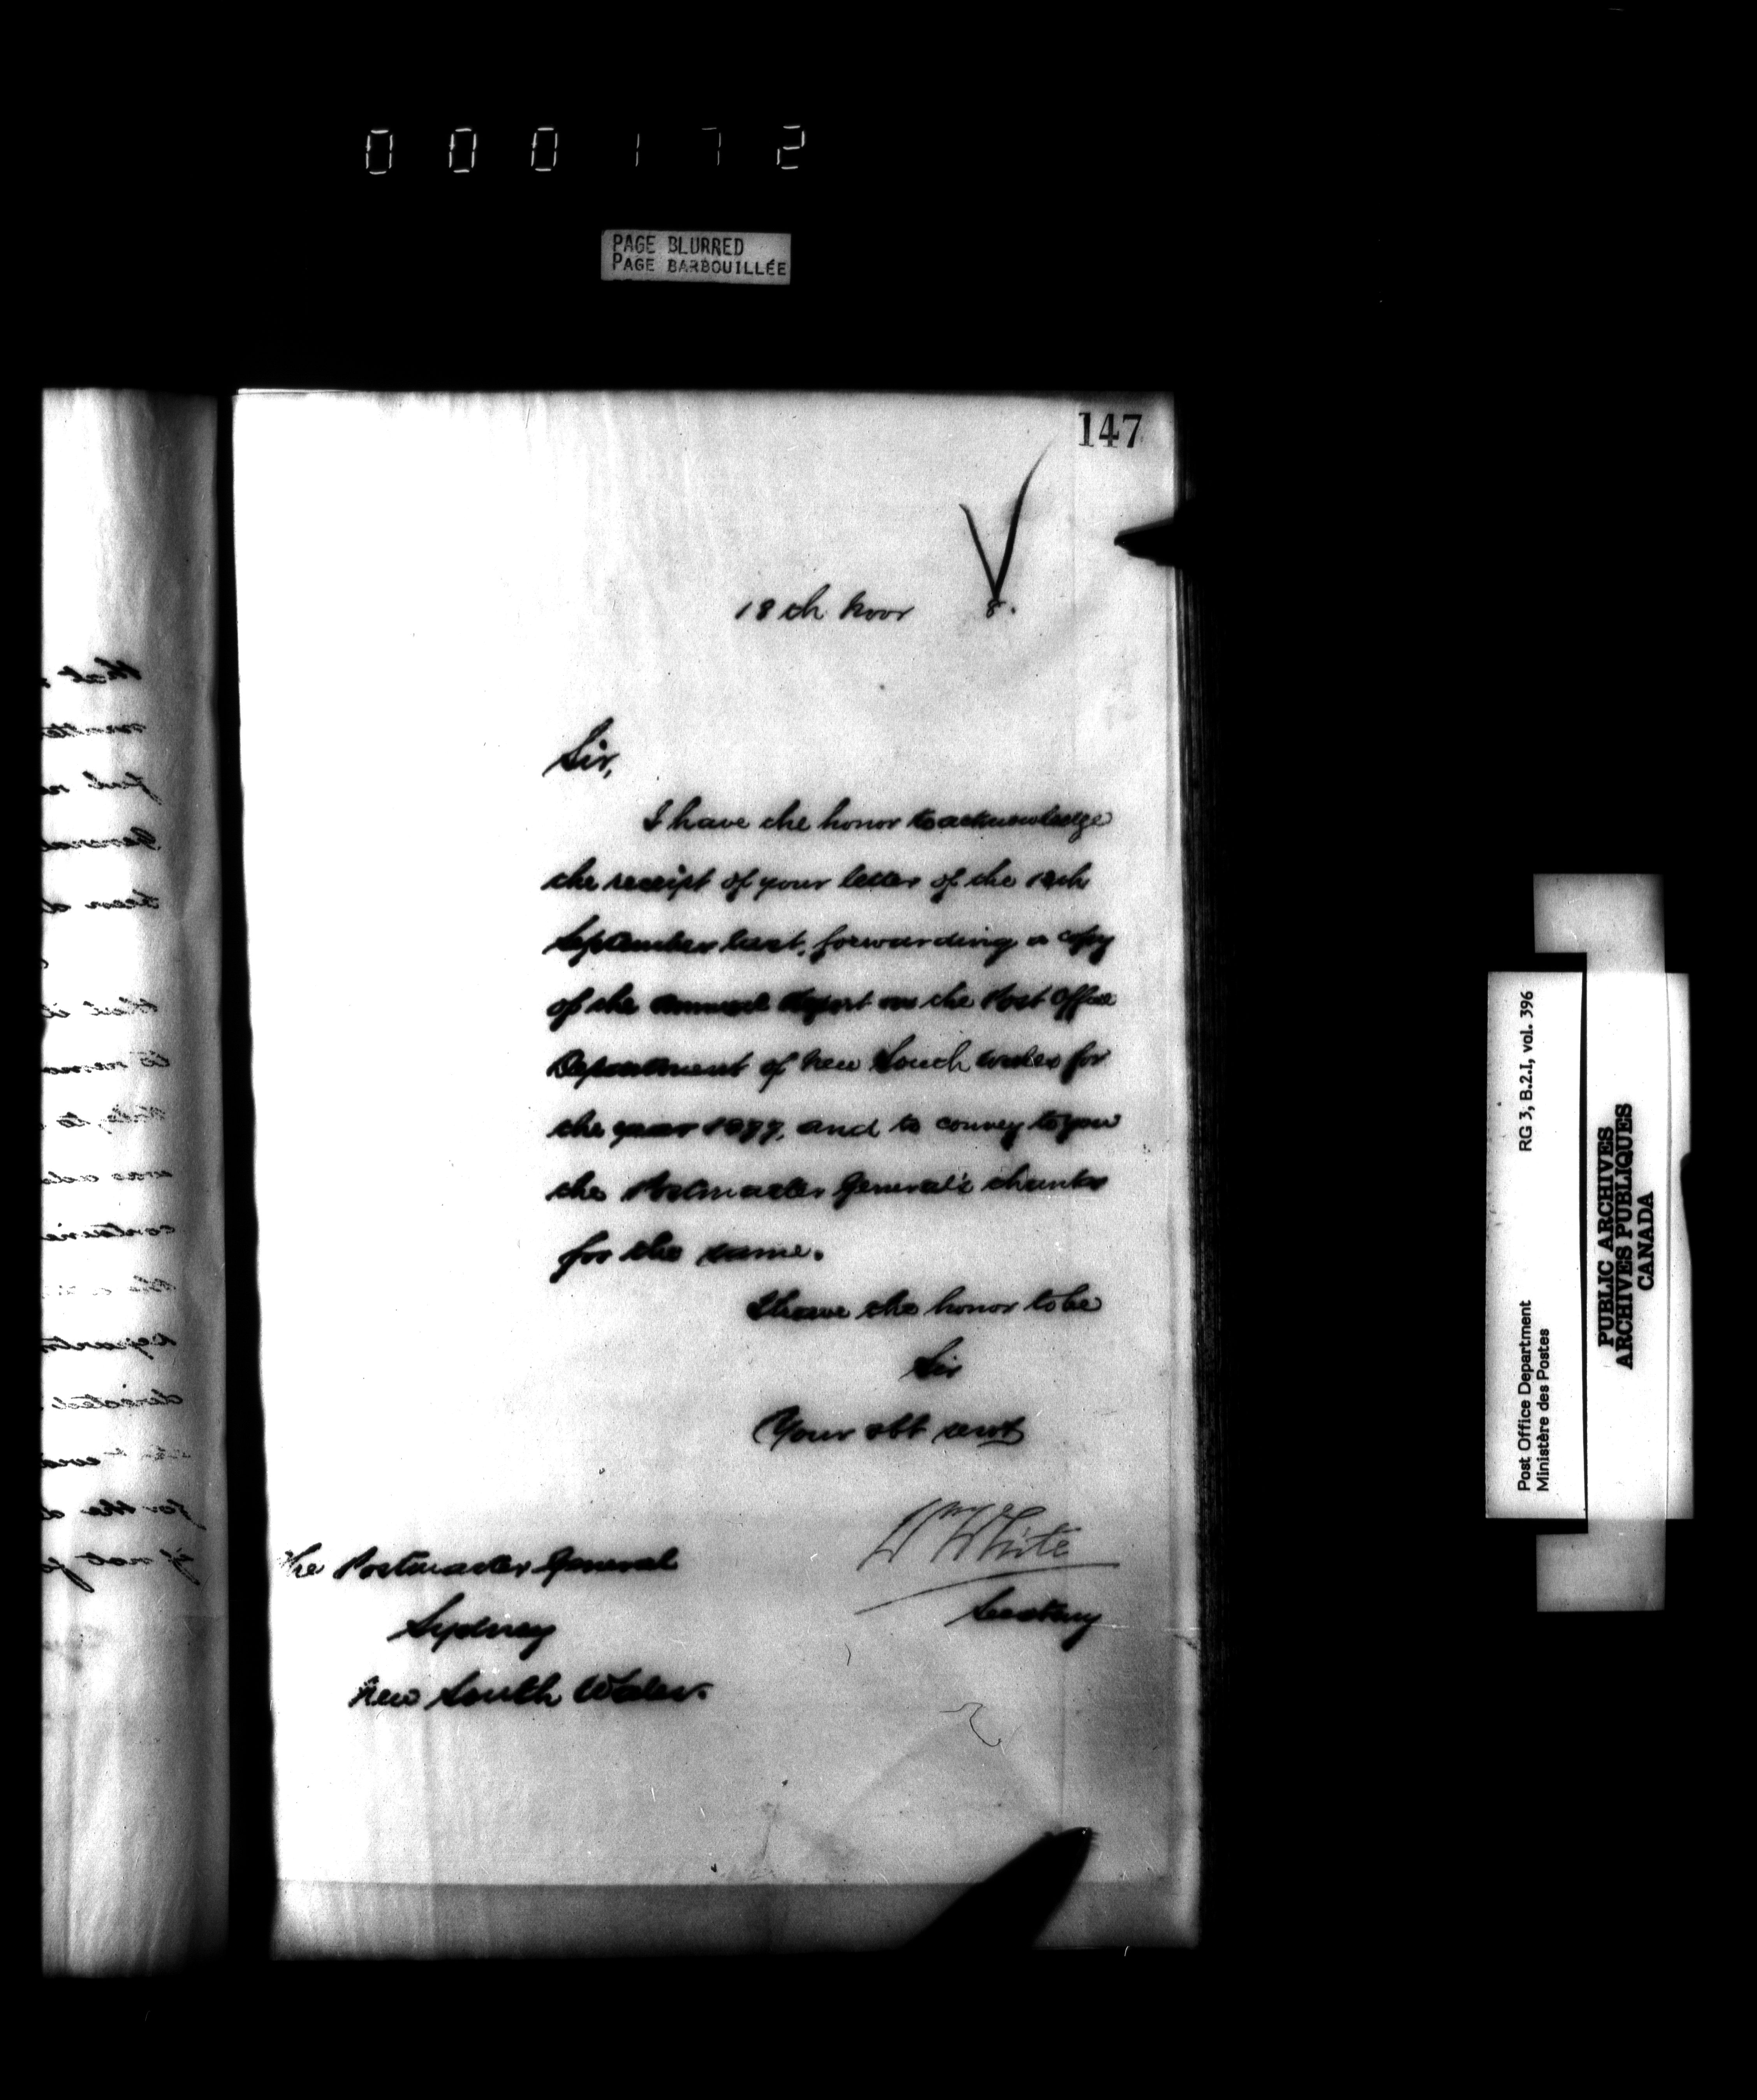 000172
PAGE BLURRED
PAGE BARBOUILLÉE
147
18th Novr 8.
Sir,
I have the honor to acknowledge
the receipt of your letter of the 12th
September last, forwarding a copy
of the annual Report on the Post Office
Department of New South Wales for
the year 1877, and to convey to you
the Postmaster General's thanks
for the same.
I have the honor to be
Sir
Your obt servt
Wm White
Secretary
The Postmaster General
Sydney
New South Wales.
RG 3, B.2.I, vol. 396
Post Office Department
Ministère des Postes
PUBLIC ARCHIVES
ARCHIVES PUBLIQUES
CANADA